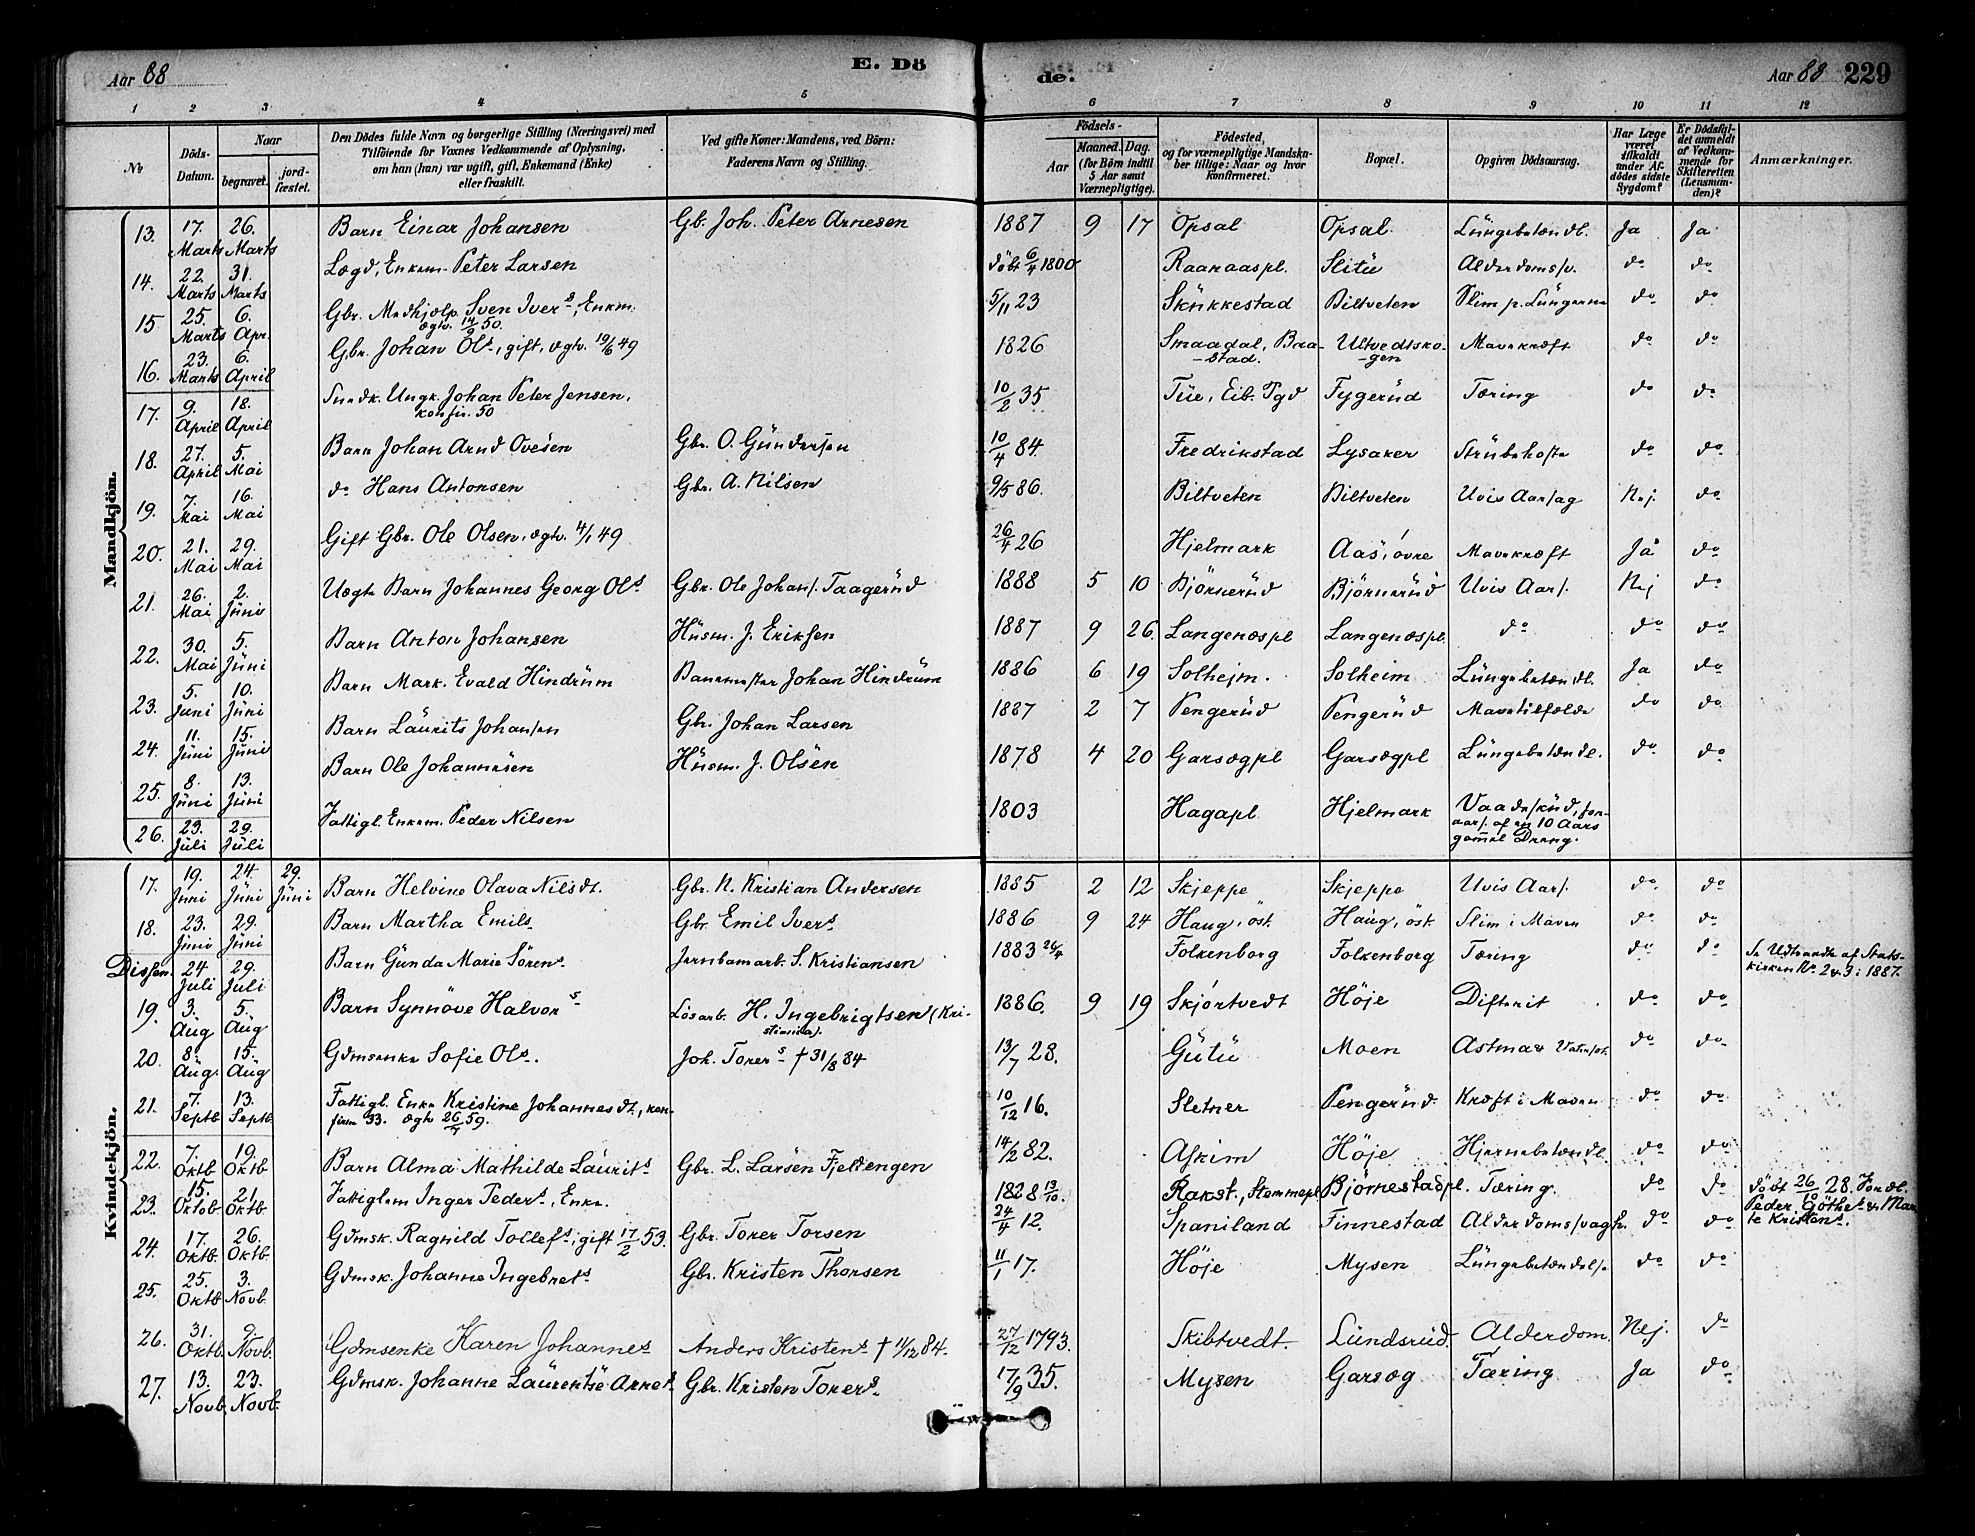 Aar 88
E. Dö
de.
Aar 88 229
1 2 3 4 5 6 7 8 9 10 11 12
No
Döds-Datum.
Naar
begravet.
jord-fæstet.
Den Dödes fulde Navn og borgerlige Stilling (Næringsvei) med
Tilföiende for Voxnes Vedkommende af Oplysning,
om han (hun) var ugift, gift, Enkemand (Enke)
eller fraskilt.
Ved gifte Koner: Mandens, ved Börn:
Faderens Navn og Stilling.
Födsels-
Aar
Maaned. Dag.
(for Börn indtil
5 Aar samt
Værnepligtige).
Födested,
og for værnepligtige Mandskaber tillige: Naar og hvor
konfirmeret.
Bopæl.
Opgiven Dödsaarsag.
Har Læge
været
tilkaldt
under Afdödes sidste
Sygdom?
Er Dödsfaldet anmeldt
af Vedkommende for
Skifteretten
(Lensmanden)?
Anmærkninger.
Mandkjön.
13. 17. Marts 26. Marts Barn Einar Johansen Gb. Joh. Peter Arnesen 1887 9 17 Opsal Opsal. Lüngebetændl. Ja Ja.
14. 22. Marts 31. Marts Lægd, Enkem. Peter Larsen döbt 6/4 1800 Raanaaspl. Slitü Alderdomssv. do do
15 25. Marts 6. Apr. Gbr. Medhjælp. Sven Ivers, Enkm. 5/11 23 Skükkestad Biltveten Slim p. Lüngerne do do
ægtv. 14/9 50.
16. 23. Marts 6. April Gbr. Johan Ols, gift, ægtv. 19/6 49 1826 Smaadal, Baa-stad. Ultvedtsko-gen Mavekræft do do
17. 9. April 18. April Ungk. Johan Peter Jensen, 10/2 35 Tüe, Eib. Pgd Fygerüd Tæring do do
konfir. 50
18. 27. April 5. Mai Barn Johan Arnd Ovesen Gbr. O. Gündersen 10/4 84. Fredrikstad Lysaker Strübehoste do do
19. 7. Mai 16. Mai do Hans Antonsen Gbr. A. Nilsen 9/5 86. Biltveten Biltveten Uvis Aarsag Nej. do
20. 21. Mai 29. Mai Gift Gbr. Ole Olsen, ægtv. 4/1 49 26/4 26 Hjelmark Aas, övre Mavekræft Ja do
21. 26. Mai 2. Jüni Uegte Barn Johannes Georg Ols Gbr. Ole Johans. Taagerüd 1888 5 10 Björnerüd Björnerüd Uvis Aars. Nej do
22. 30. Mai 5. Jüni Barn Anton Johansen Hüsm. J. Eriksen 1887 9 26 Langenæspl Langenæspl. do do do
23. 5. Juni 10. Jüni Barn Mark. Evald Hindrüm Banemester Johan Hindrüm 1886 6 19 Solhejm. Solheim Lüngebetændl. Ja do
24. 11. Jüni 15. Jüni Barn Läurits Johansen Gbr. Johan Larsen 1887 2 7 Pengerüd Pengerüd Mavetilfælde do do
25. 8. Jüni 13. Jüni Barn Ole Johannesen Hüsm. J. Olsen 1878 4 20 Garsegpl Garsegpl Lüngebetændl. do do
26. 23. Jüli 29. Jüli Fattigl. Enkem. Peder Nilsen 1803 Hagapl. Hjelmark Vaadeskud, for-
aars. af en 10 Aars
gammel Dreng.
Kvindekjön.
17. 19. Juni 24. Jüni 29. Jüni Barn Helvine Olava Nilsdt. Gbr. N. Kristian Andersen 1885 2 12 Skjeppe Skjeppe Uvis Aars. do do
18. 23. Jüni 29. Jüni Barn Martha Emils Gbr. Emil Ivers 1886 9 24 Haug, öst. Haug, öst. Slim i Maven do do
Dissen. 24 Juli 29. Juli Barn Günda Marie Sörens Jernbanearb. S. Kristiansen 1883 26/4 Folkenborg Folkenborg Tæring do do Se Udtraadte af Stats-
kirken No. 2 & 3 i 1887.
19. 3. Aüg 5. Aüg Barn Synnöve Halvors Lösarb. H. Ingebrigtsen (Kri-
stiania). 1886. 9 19 Skjörtvedt Höje Difterit do do
20. 8. Aüg. 15. Aüg Gdmsenke Sofie Ols. Joh. Torers † 31/8 84 13/7 28. Gütü Moen Astma & Vatersot. do do
21. 7. Septb 13. Septb Fattigl. Enke Kristine Johannesdt., kon-
firm 33. ægtv 26/7 59. 10/12 16. Sletner Pengerüd. Kræft i Maven do do
22. 7. Oktb 19. Oktb Barn Alma Mathilde Laurits Gbr. L. Larsen Fjeldengen 14/2 82. Askim Höje Hjernebetændl. do do
23. 15. Oktob 21. Oktb Fattiglem Inger Peders, Enke. 1828 13/10. Rakst., Stemmepl Björnestadpl. Tæring. do do döbt 26/10 28. Foræld.
Peder Göthes & Mar-
te Kristens.
24. 17. Oktb. 26. Oktb. Gdmsk. Ragnild Tollefs, gift 17/2 53. Gbr. Torer Torsen 24/4 12. Spaniland Finnestad Alderdomssvagh. do do
25. 25. Oktb 3. Novb. Gdmsk. Johanne Ingebrets Gbr. Kristen Thorsen 11/1 17. Höje Mysen Lüngebetændelse do do
26. 31. Oktb. 9. Novb. Gdmsenke Karen Johannes Anders Kristens † 11/12 84. 27/12 1793. Skibtvedt. Lündsrüd. Alderdom. Nej. do
27. 13. Novb. 23. Novb. Gdmsk. Johanne Läurentse Arnes Gbr. Kristen Torers 17/9 35. Mysen Garseg Tæring Ja do